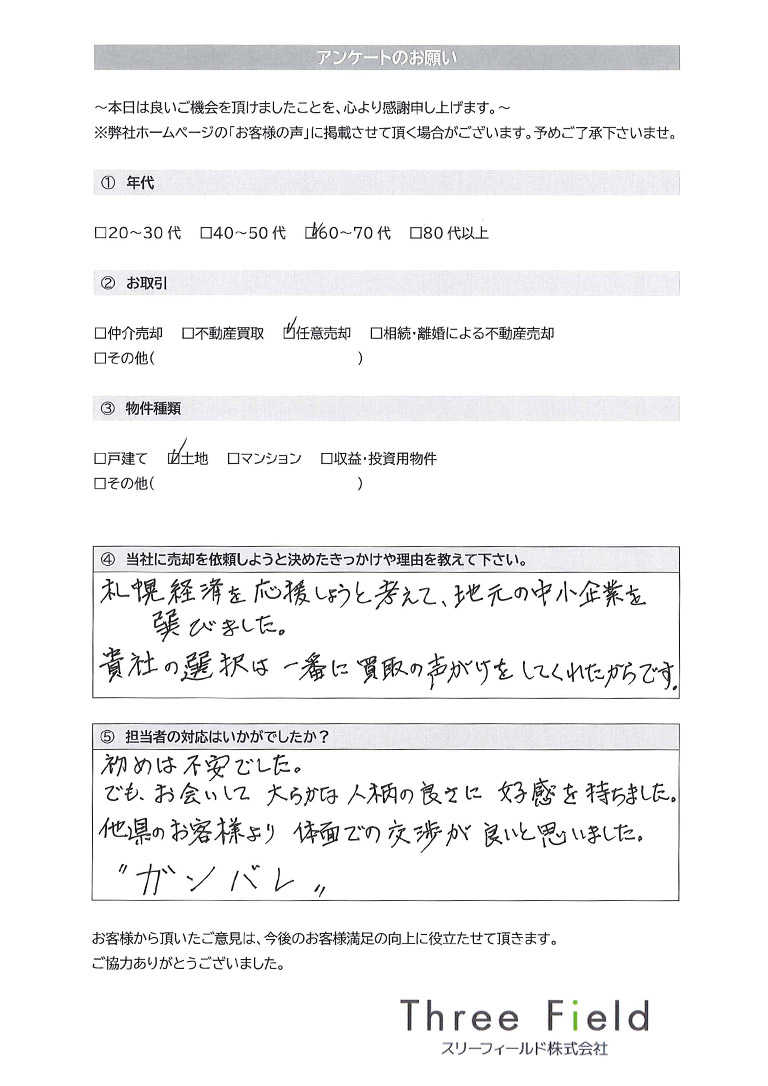 アンケートのお願い
～本日は良いご機会を頂けましたことを、心より感謝申し上げます。～
※弊社ホームページの「お客様の声」に掲載させて頂く場合がございます。予めご了承下さいませ。
① 年代
□20～30代 □40～50代 ☑60～70代 □80代以上
② お取引
□仲介売却 □不動産買取 ☑任意売却 □相続・離婚による不動産売却
□その他( )
③ 物件種類
□戸建て ☑土地 □マンション □収益・投資用物件
□その他( )
④ 当社に売却を依頼しようと決めたきっかけや理由を教えて下さい。
札幌経済を応援しようと考えて、地元の中小企業を
選びました。
貴社の選択は 一番に買取の声がけをしてくれたからです。
⑤ 担当者の対応はいかがでしたか？
初めは不安でした。
でも、お会いして 大らかな人柄の良さに 好感を持ちました。
他県のお客様より 体面での交渉が 良いと思いました。
〝ガンバレ〟
お客様から頂いたご意見は、今後のお客様満足の向上に役立たせて頂きます。
ご協力ありがとうございました。
Three Field
スリーフィールド株式会社